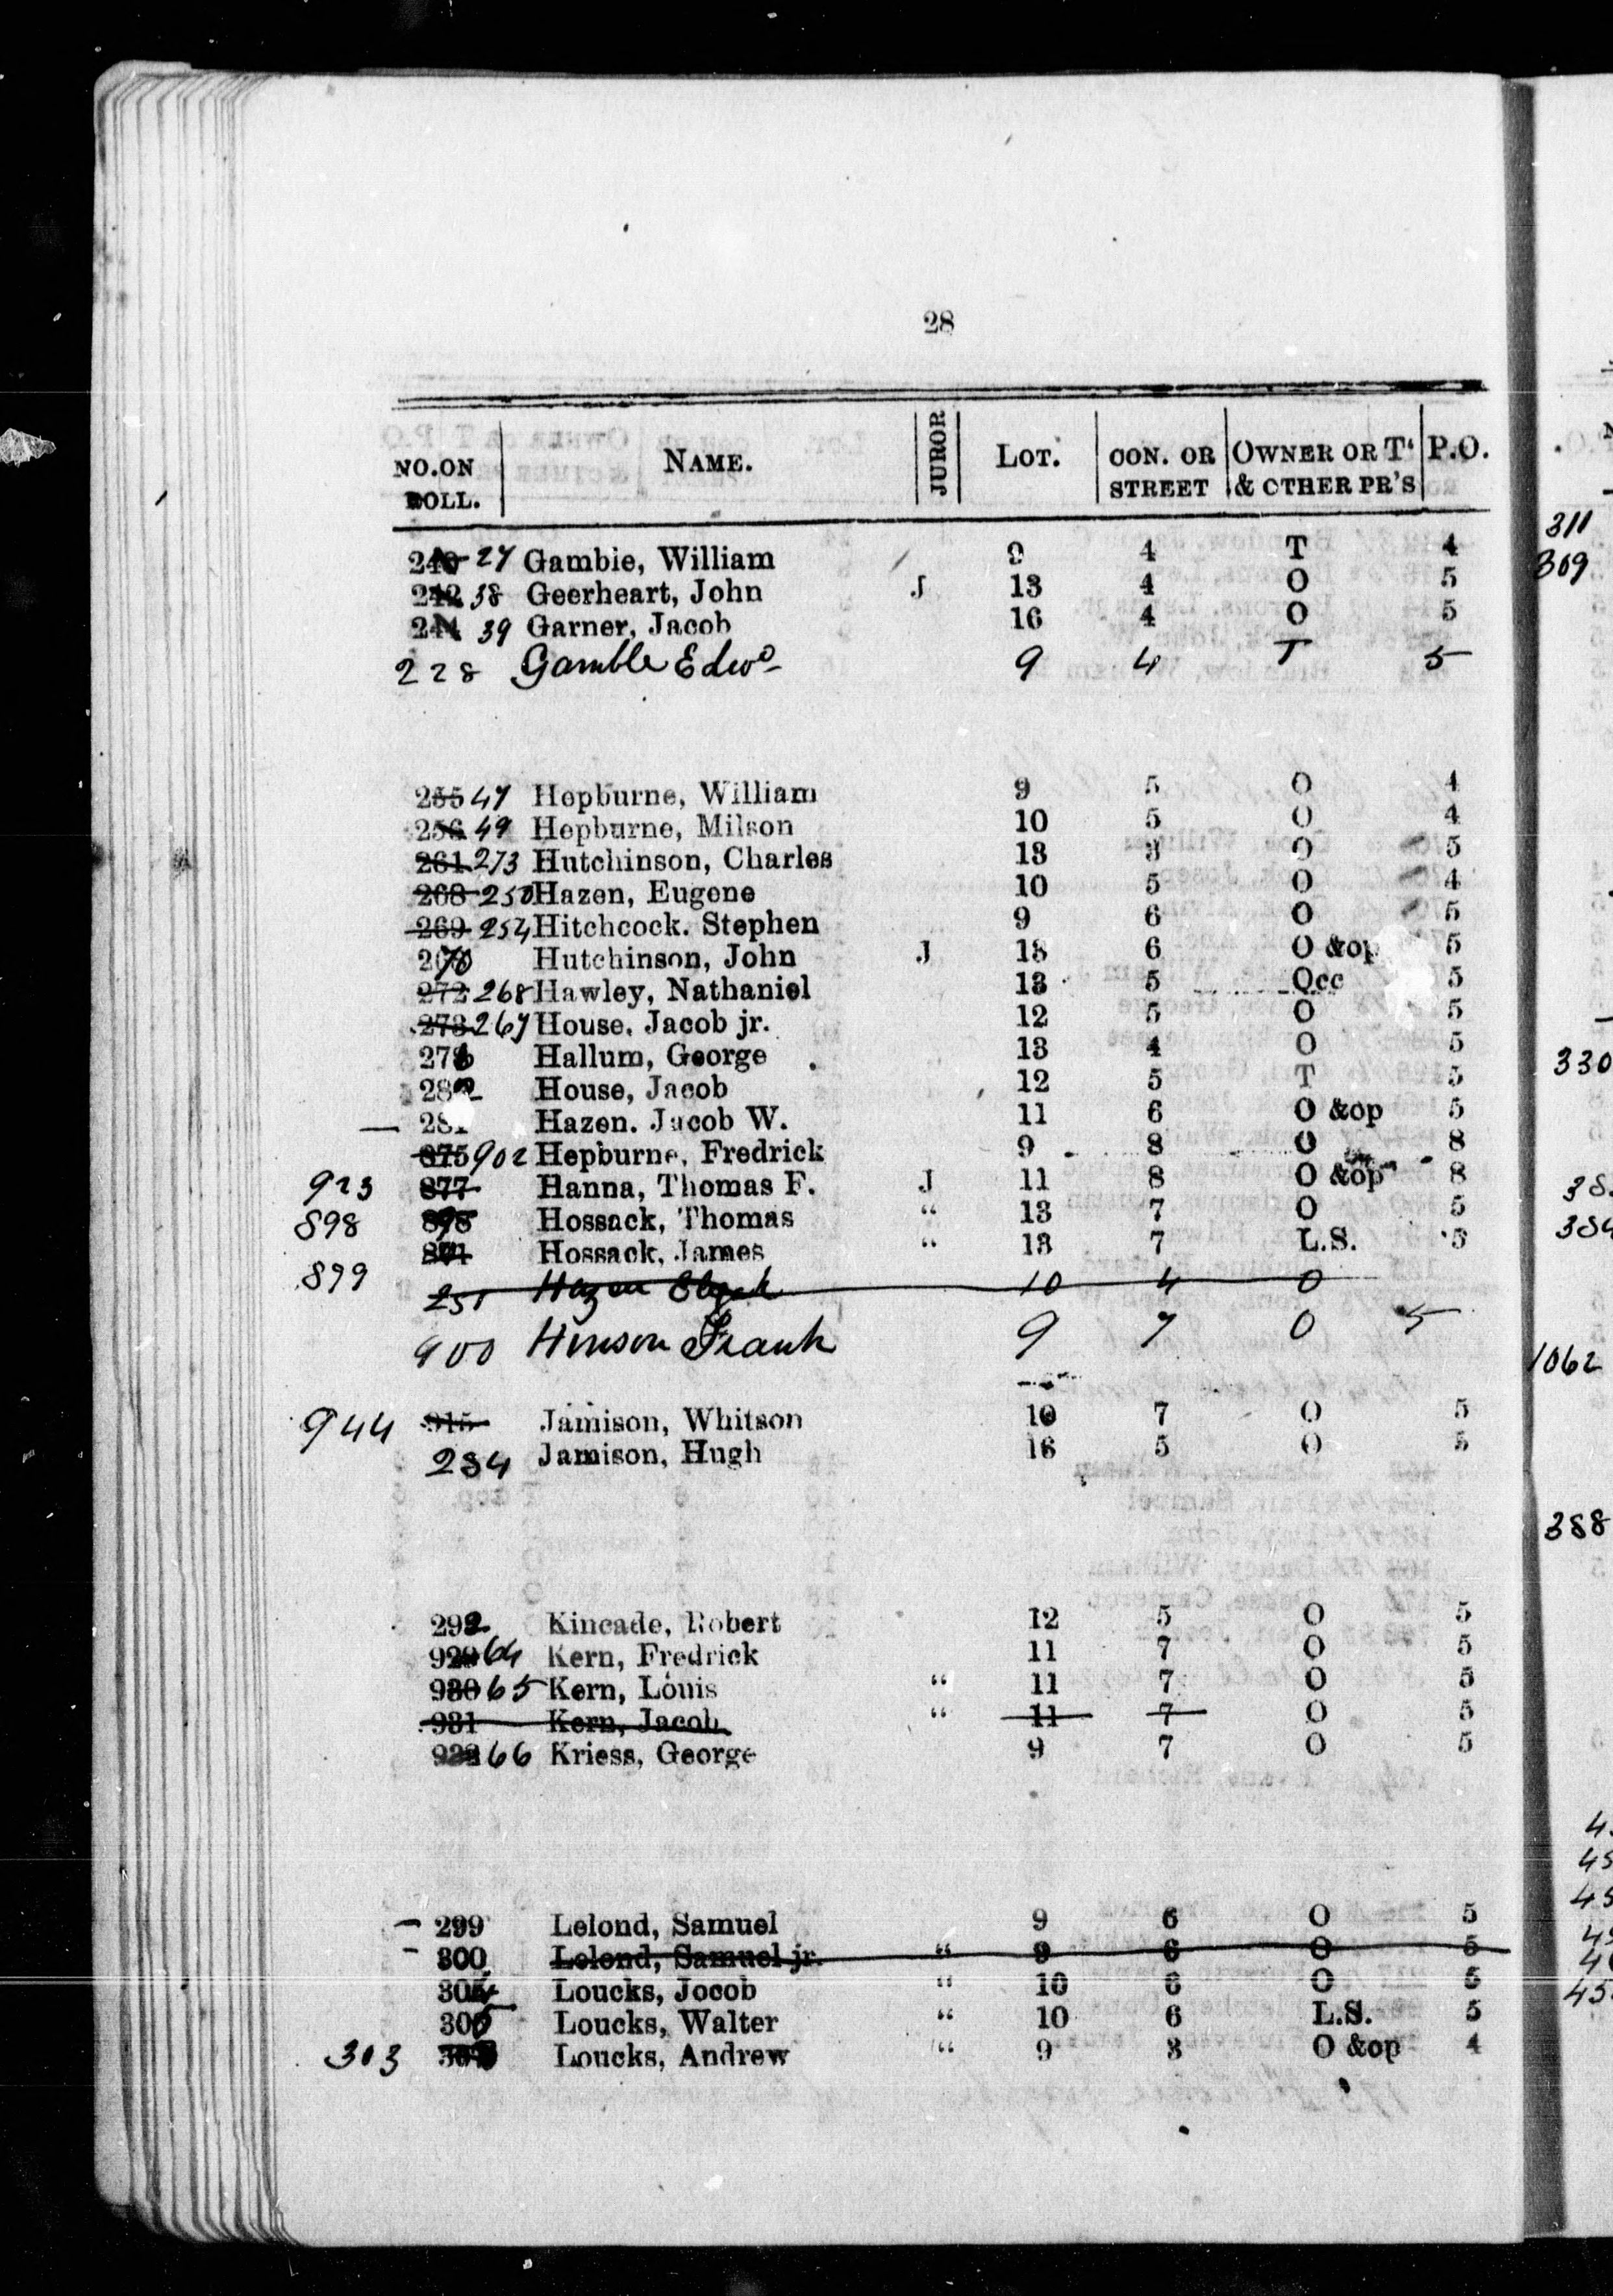 28
NO.ON ROLL. NAME. JUROR LOT. CON. OR STREET OWNER OR T' & OTHER PR'S P.O.
27 Gambie, William 9 4 T 4
242 38 Geerheart, John J 13 4 O 5
244 39 Garner, Jacob 16 4 O 5
228 Gamble Edwd 9 4 T 5
255 47 Hepburne, William 9 5 O 4
256 49 Hepburne, Milson 10 5 O 4
261 273 Hutchinson, Charles 13 3 O 5
268 250 Hazen, Eugene 10 5 O 4
269 254 Hitchcock. Stephen 9 6 O 5
270 Hutchinson, John J 18 6 O &op 5
272 268 Hawley, Nathaniel 13 5 Occ 5
273 267 House, Jacob jr. 12 5 O 5
276 Hallum, George 13 4 O 5
282 House, Jacob 12 5 T 5
281 Hazen. Jacob W. 11 6 O &op 5
875 902 Hepburne, Fredrick 9 8 O 8
923 877 Hanna, Thomas F. J 11 8 O &op 8
898 Hossack, Thomas “ 13 7 O 5
899 Hossack, James “ 13 7 L.S. 5
251 Hazen 10 4 O
900 Hinson Frank 9 7 O 5
944 915 Jamison, Whitson 10 7 O 5
284 Jamison, Hugh 16 5 O 5
292 Kincade, Robert 12 5 O 5
929 64 Kern, Fredrick 11 7 O 5
930 65 Kern, Louis “ 11 7 O 5
931 Kern, Jacob “ 11 7 O 5
66 Kriess, George 9 7 O 5
299 Lelond, Samuel 9 6 O 5
300 Lelond, Samuel jr. “ 9 6 O 5
304 Loucks, Jocob “ 10 6 O 5
305 Loucks, Walter “ 10 6 L.S. 5
303 Loucks, Andrew “ 9 3 O &op 4
311
309
330
384
1062
388